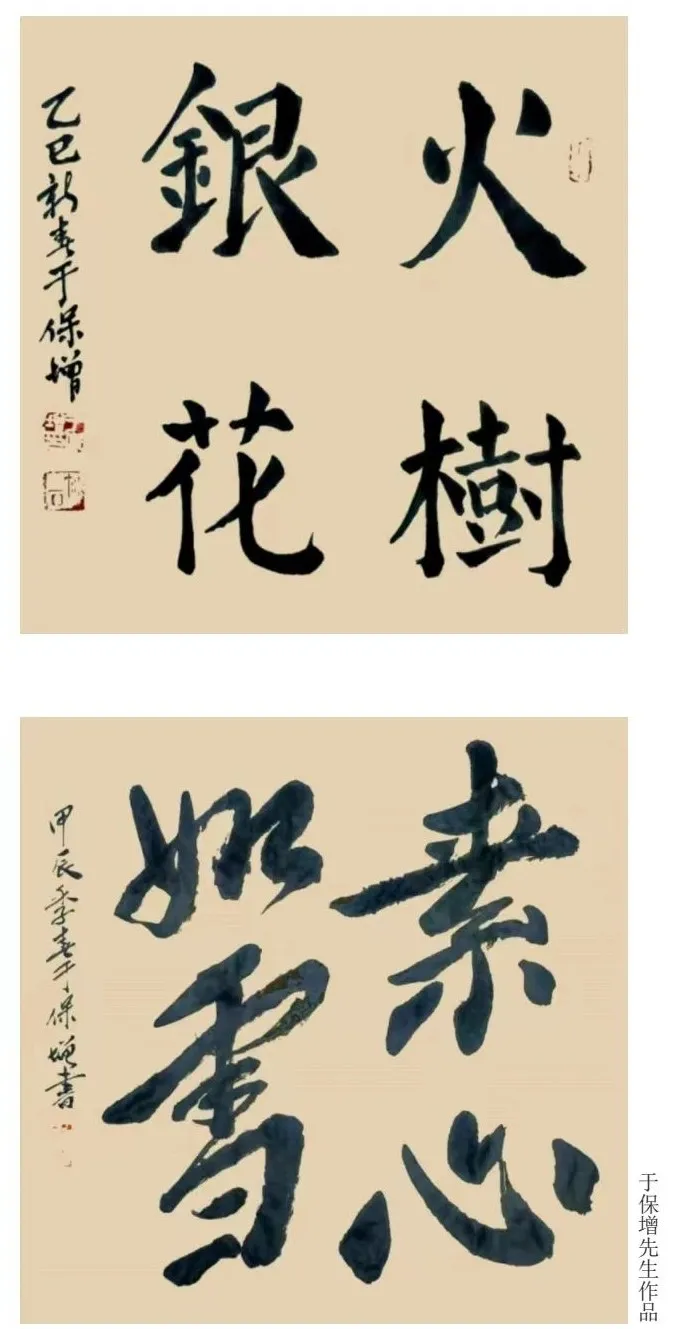 火樹
銀花
乙巳新春于保增
素心
如雪
甲辰季春于保增書
于保增先生作品